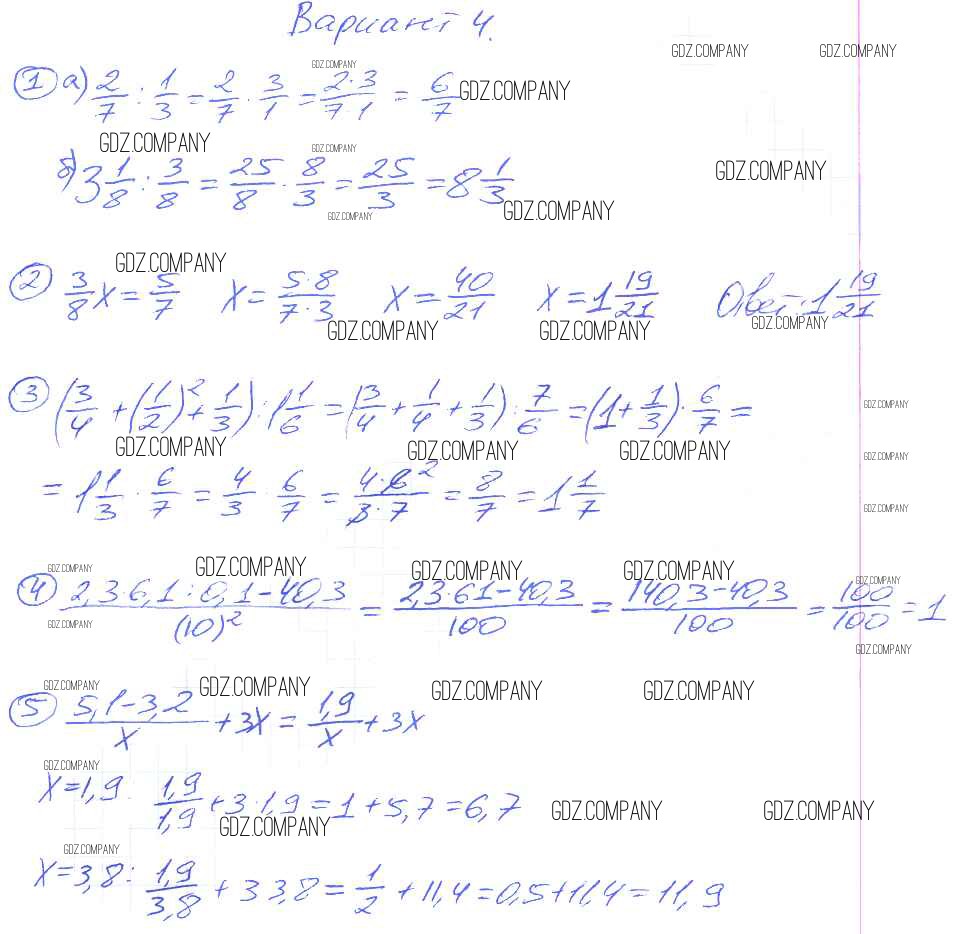 Вариант 4.
GDZ.COMPANY GDZ.COMPANY
GDZ.COMPANY
① а) 2/7 : 1/3 = 2/7 · 3/1 = 2·3/7·1 = 6/7 GDZ.COMPANY
GDZ.COMPANY GDZ.COMPANY
б) 3 1/8 : 3/8 = 25/8 · 8/3 = 25/3 = 8 1/3 GDZ.COMPANY
GDZ.COMPANY GDZ.COMPANY
GDZ.COMPANY
② 3/8 x = 5/7 x = 5·8/7·3 x = 40/21 x = 1 19/21 Ответ: 1 19/21
GDZ.COMPANY GDZ.COMPANY GDZ.COMPANY
③ (3/4 + (1/2)² + 1/3) : 1 1/6 = (3/4 + 1/4 + 1/3) : 7/6 = (1 + 1/3) · 6/7 = GDZ.COMPANY
GDZ.COMPANY GDZ.COMPANY GDZ.COMPANY GDZ.COMPANY
= 1 1/3 · 6/7 = 4/3 · 6/7 = 4·6²/3·7 = 8/7 = 1 1/7 GDZ.COMPANY
GDZ.COMPANY GDZ.COMPANY GDZ.COMPANY GDZ.COMPANY GDZ.COMPANY
④ 2,3·6,1:0,1-40,3/(10)² = 2,3·61-40,3/100 = 140,3-40,3/100 = 100/100 = 1
GDZ.COMPANY GDZ.COMPANY
GDZ.COMPANY GDZ.COMPANY GDZ.COMPANY GDZ.COMPANY
⑤ 5,1-3,2/x + 3x = 1,9/x + 3x
GDZ.COMPANY
x=1,9: 1,9/1,9 + 3·1,9 = 1 + 5,7 = 6,7 GDZ.COMPANY GDZ.COMPANY
GDZ.COMPANY
GDZ.COMPANY
x=3,8: 1,9/3,8 + 3 3,8 = 1/2 + 11,4 = 0,5+11,4 = 11,9